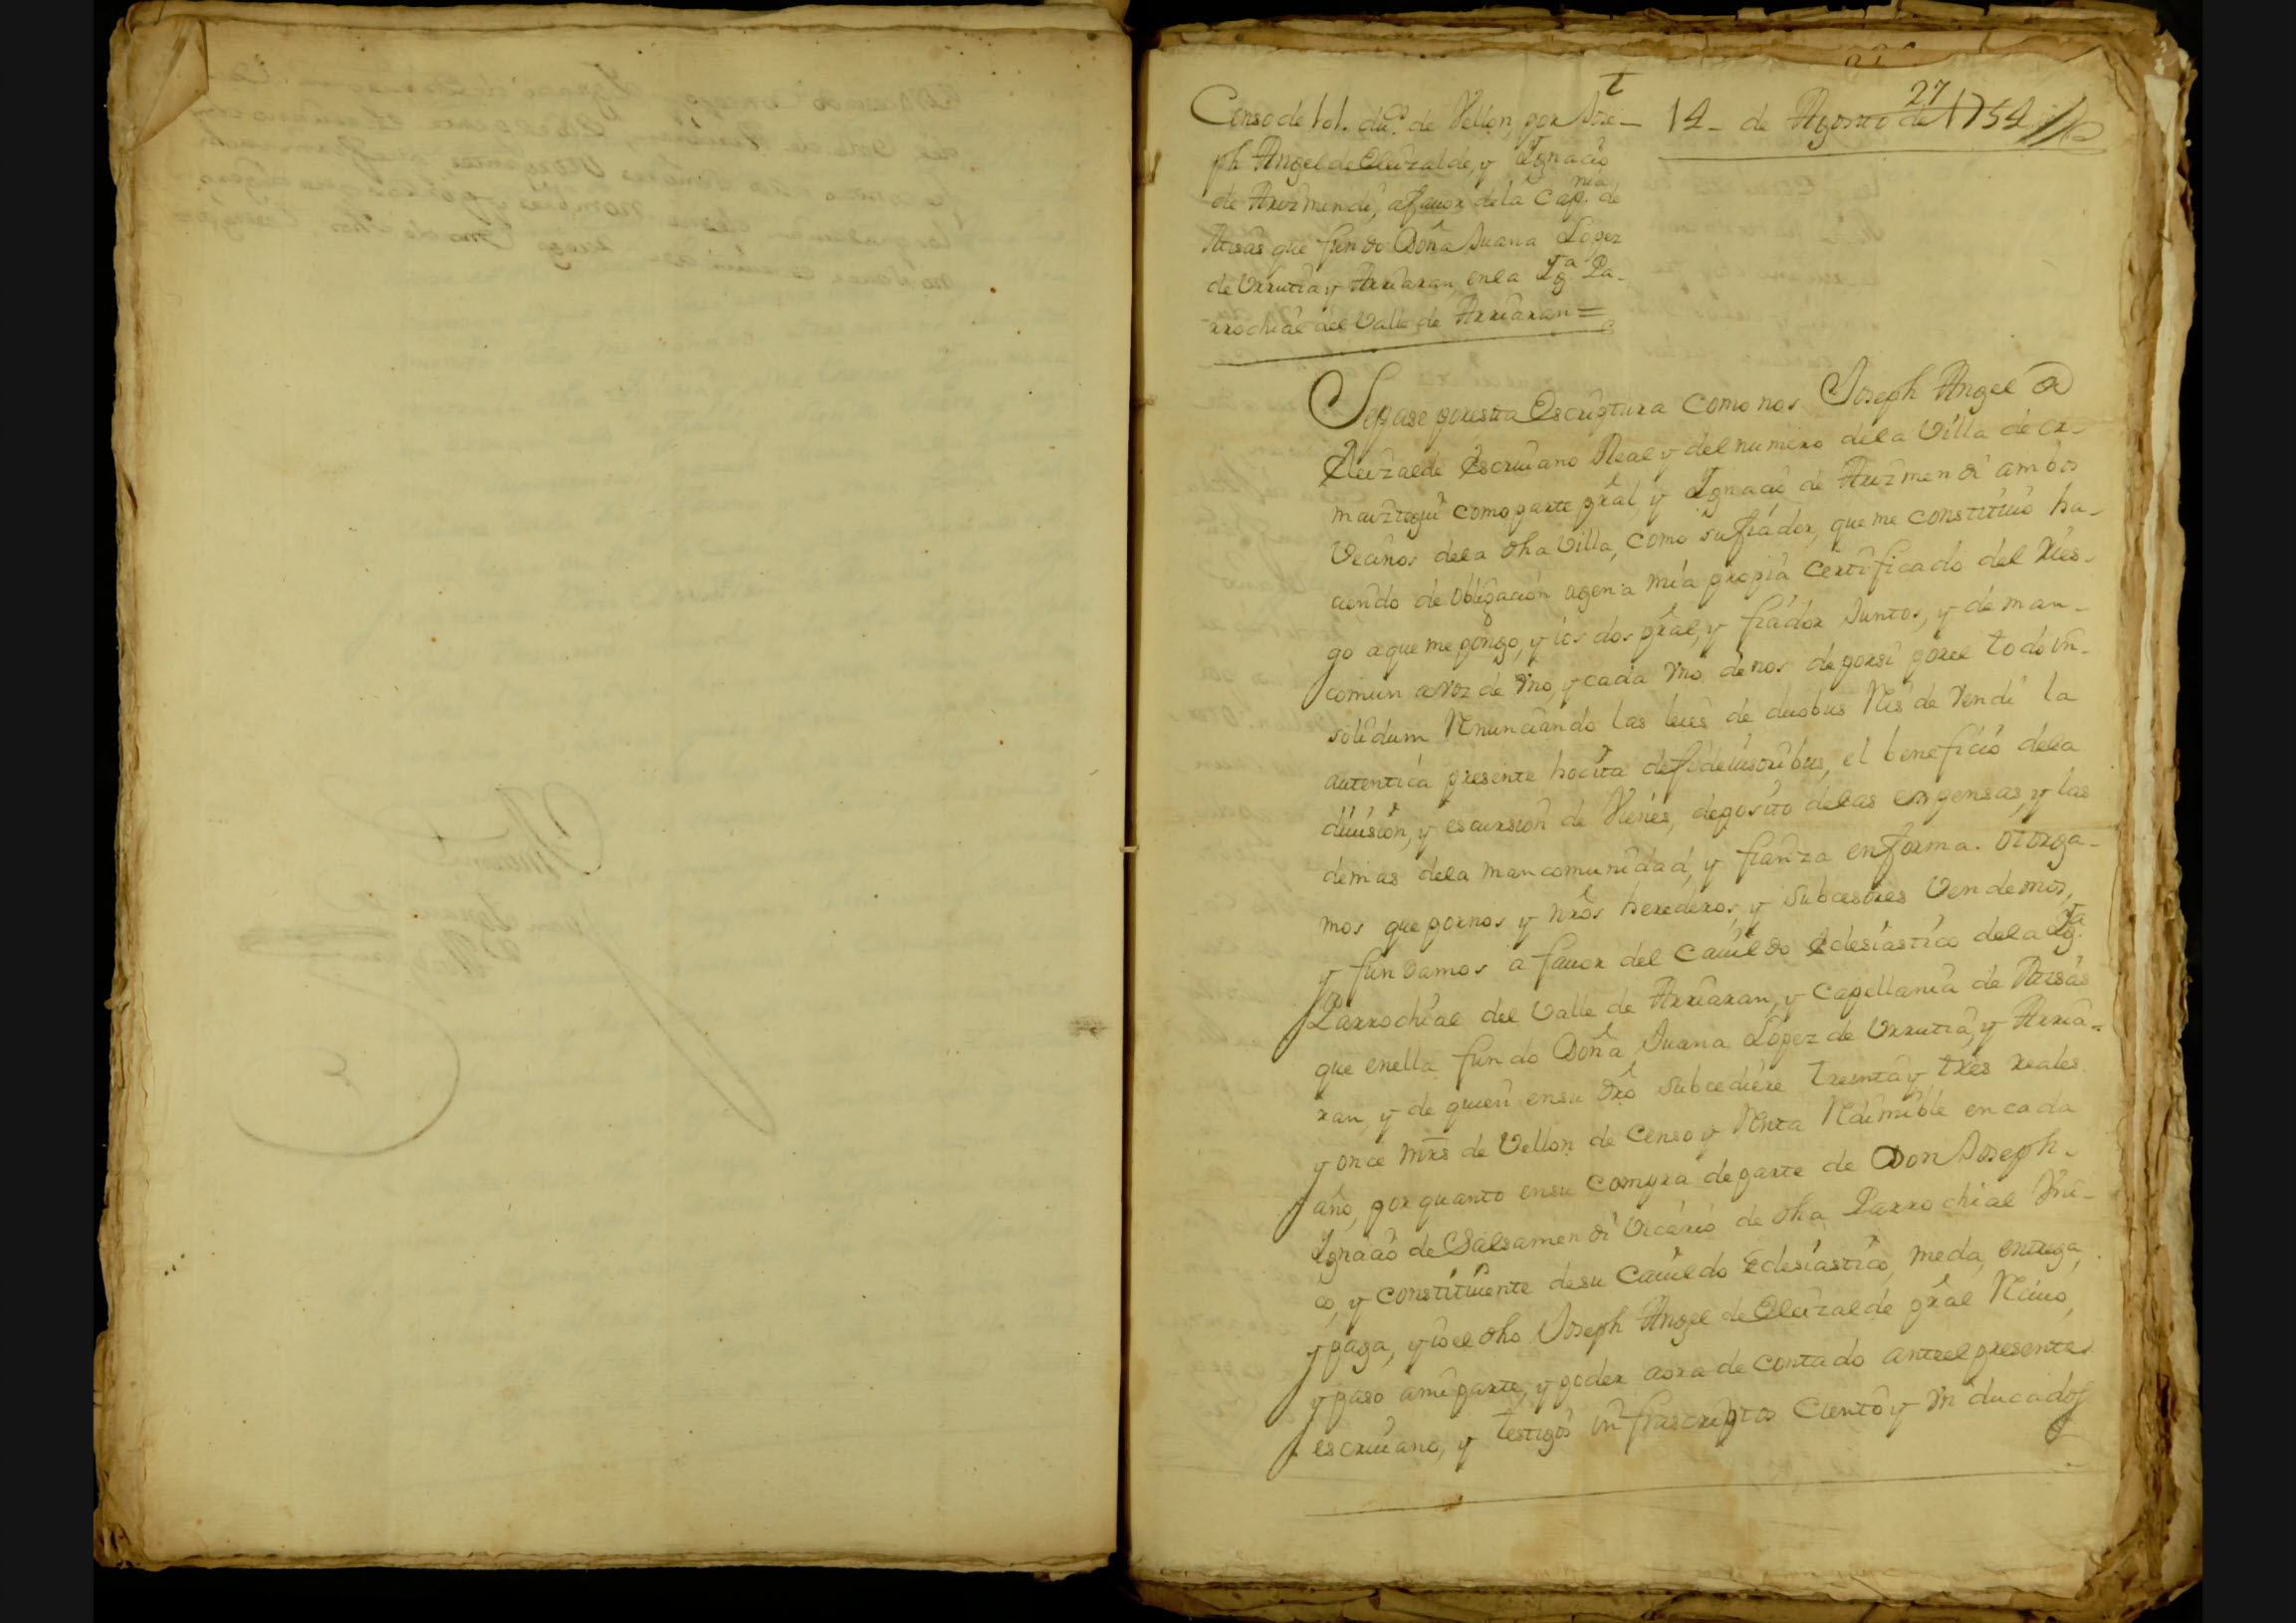 27
Censo de 101. du.s de Vellon, por Jose-
ph Angel de Eleizalde, y Ignacio
de Arizmendi, a fauor de la Cap.nia de
Misas que fundo Doña Juana Lopez
de Urrutia y Arriaran, en la Ig.a Pa-
rrochial del Valle de Arriaran =
14- de Agosto de 1754
Sepase por esta Escriptura como nos Joseph Angel de
Eleizalde Escriuano Real y del numero de la Villa de Or-
maiztegui como parte prâl, y Ignacio de Arizmendi ambos
Vecinos de la dha Villa, como su fiador, que me constituio ha-
ciendo de obligacion agena mia propia certificado del ries-
go a que me pongo, y los dos prâl, y fiador Juntos, y de man-
comun a voz de vno, y cada vno de nos de porsi por el todo in-
solidum Renunciando las leies de duobus Reis de vendi la
autentica presente hocita de fideiusoribus, el beneficio de la
diuision, y escursion de Vienes, deposito de las expensas, y las
demas de la mancomunidad, y fianza en forma. Otorga-
mos que por nos y nrôs herederos, y subcesores Vendemos,
y fundamos a fauor del Cauildo Eclesiastico de la Ig.a
Parrochial del Valle de Arriaran, y Capellania de Misas
que en ella fundo Doña Juana Lopez de Urrutia, y Arria-
ran, y de quien en su drô subcediere treinta y tres reales
y once mrs de Vellon de Censo y Renta Redimible en cada
año, por quanto en su compra de parte de Don Joseph
Ignacio de Salsamendi Vicario de dha Parrochial Vni-
co, y constituiente de su Cauildo Eclesiastico, me da, entrega,
y paga, y io el dho Joseph Angel de Eleizalde prâl Reciuo,
y paso a mi parte, y poder aora de contado ante el presente
escriuano, y testigos infrascriptos Ciento y vn ducados